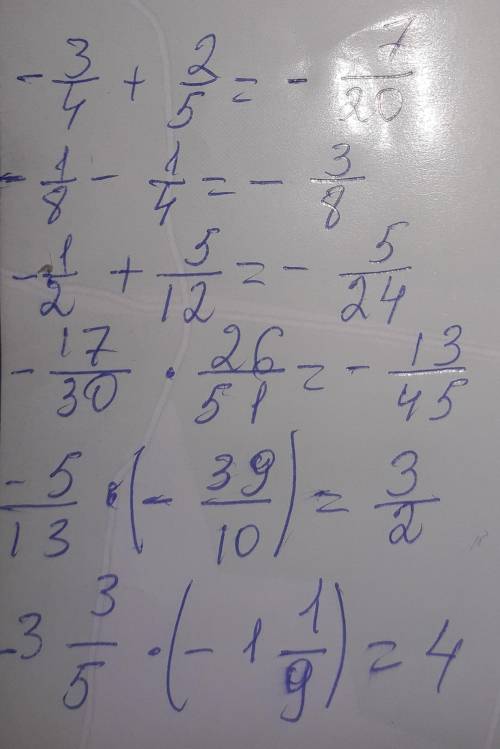 -3/4 + 2/5 = - 7/20
-1/8 - 1/4 = - 3/8
-1/2 + 5/12 = - 5/24
-17/30 · 26/51 = - 13/45
-5/13 · (- 39/10) = 3/2
-3 3/5 · (- 1 1/9) = 4